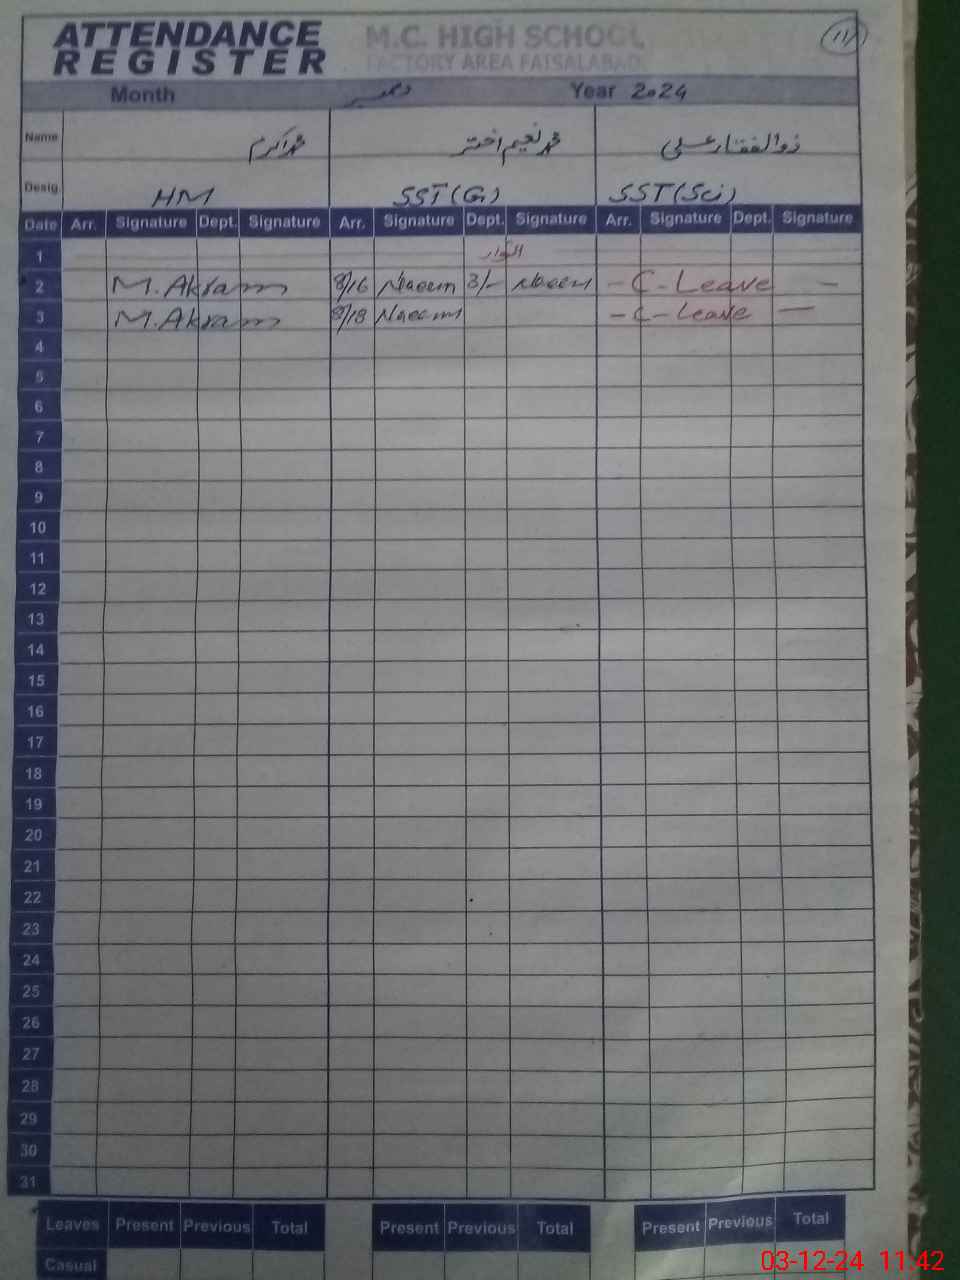 ATTENDANCE REGISTER
M.C. HIGH SCHOOL
FACTORY AREA FAISALABAD.
11
Month دسمبر Year 2024
Name محمد اکرم محمد نعیم اختر ذوالفقار علی
Desig HM SST(G) SST(Sci)
Date Arr. Signature Dept. Signature Arr. Signature Dept. Signature Arr. Signature Dept. Signature
1 اتوار
2 M.Akram 8/16 Naeem 3/- Naeem - C-Leave -
3 M.Akram 8/18 Naeem - C-Leave -
4
5
6
7
8
9
10
11
12
13
14
15
16
17
18
19
20
21
22
23
24
25
26
27
28
29
30
31
Leaves Present Previous Total Present Previous Total Present Previous Total
Casual
03-12-24 11:42